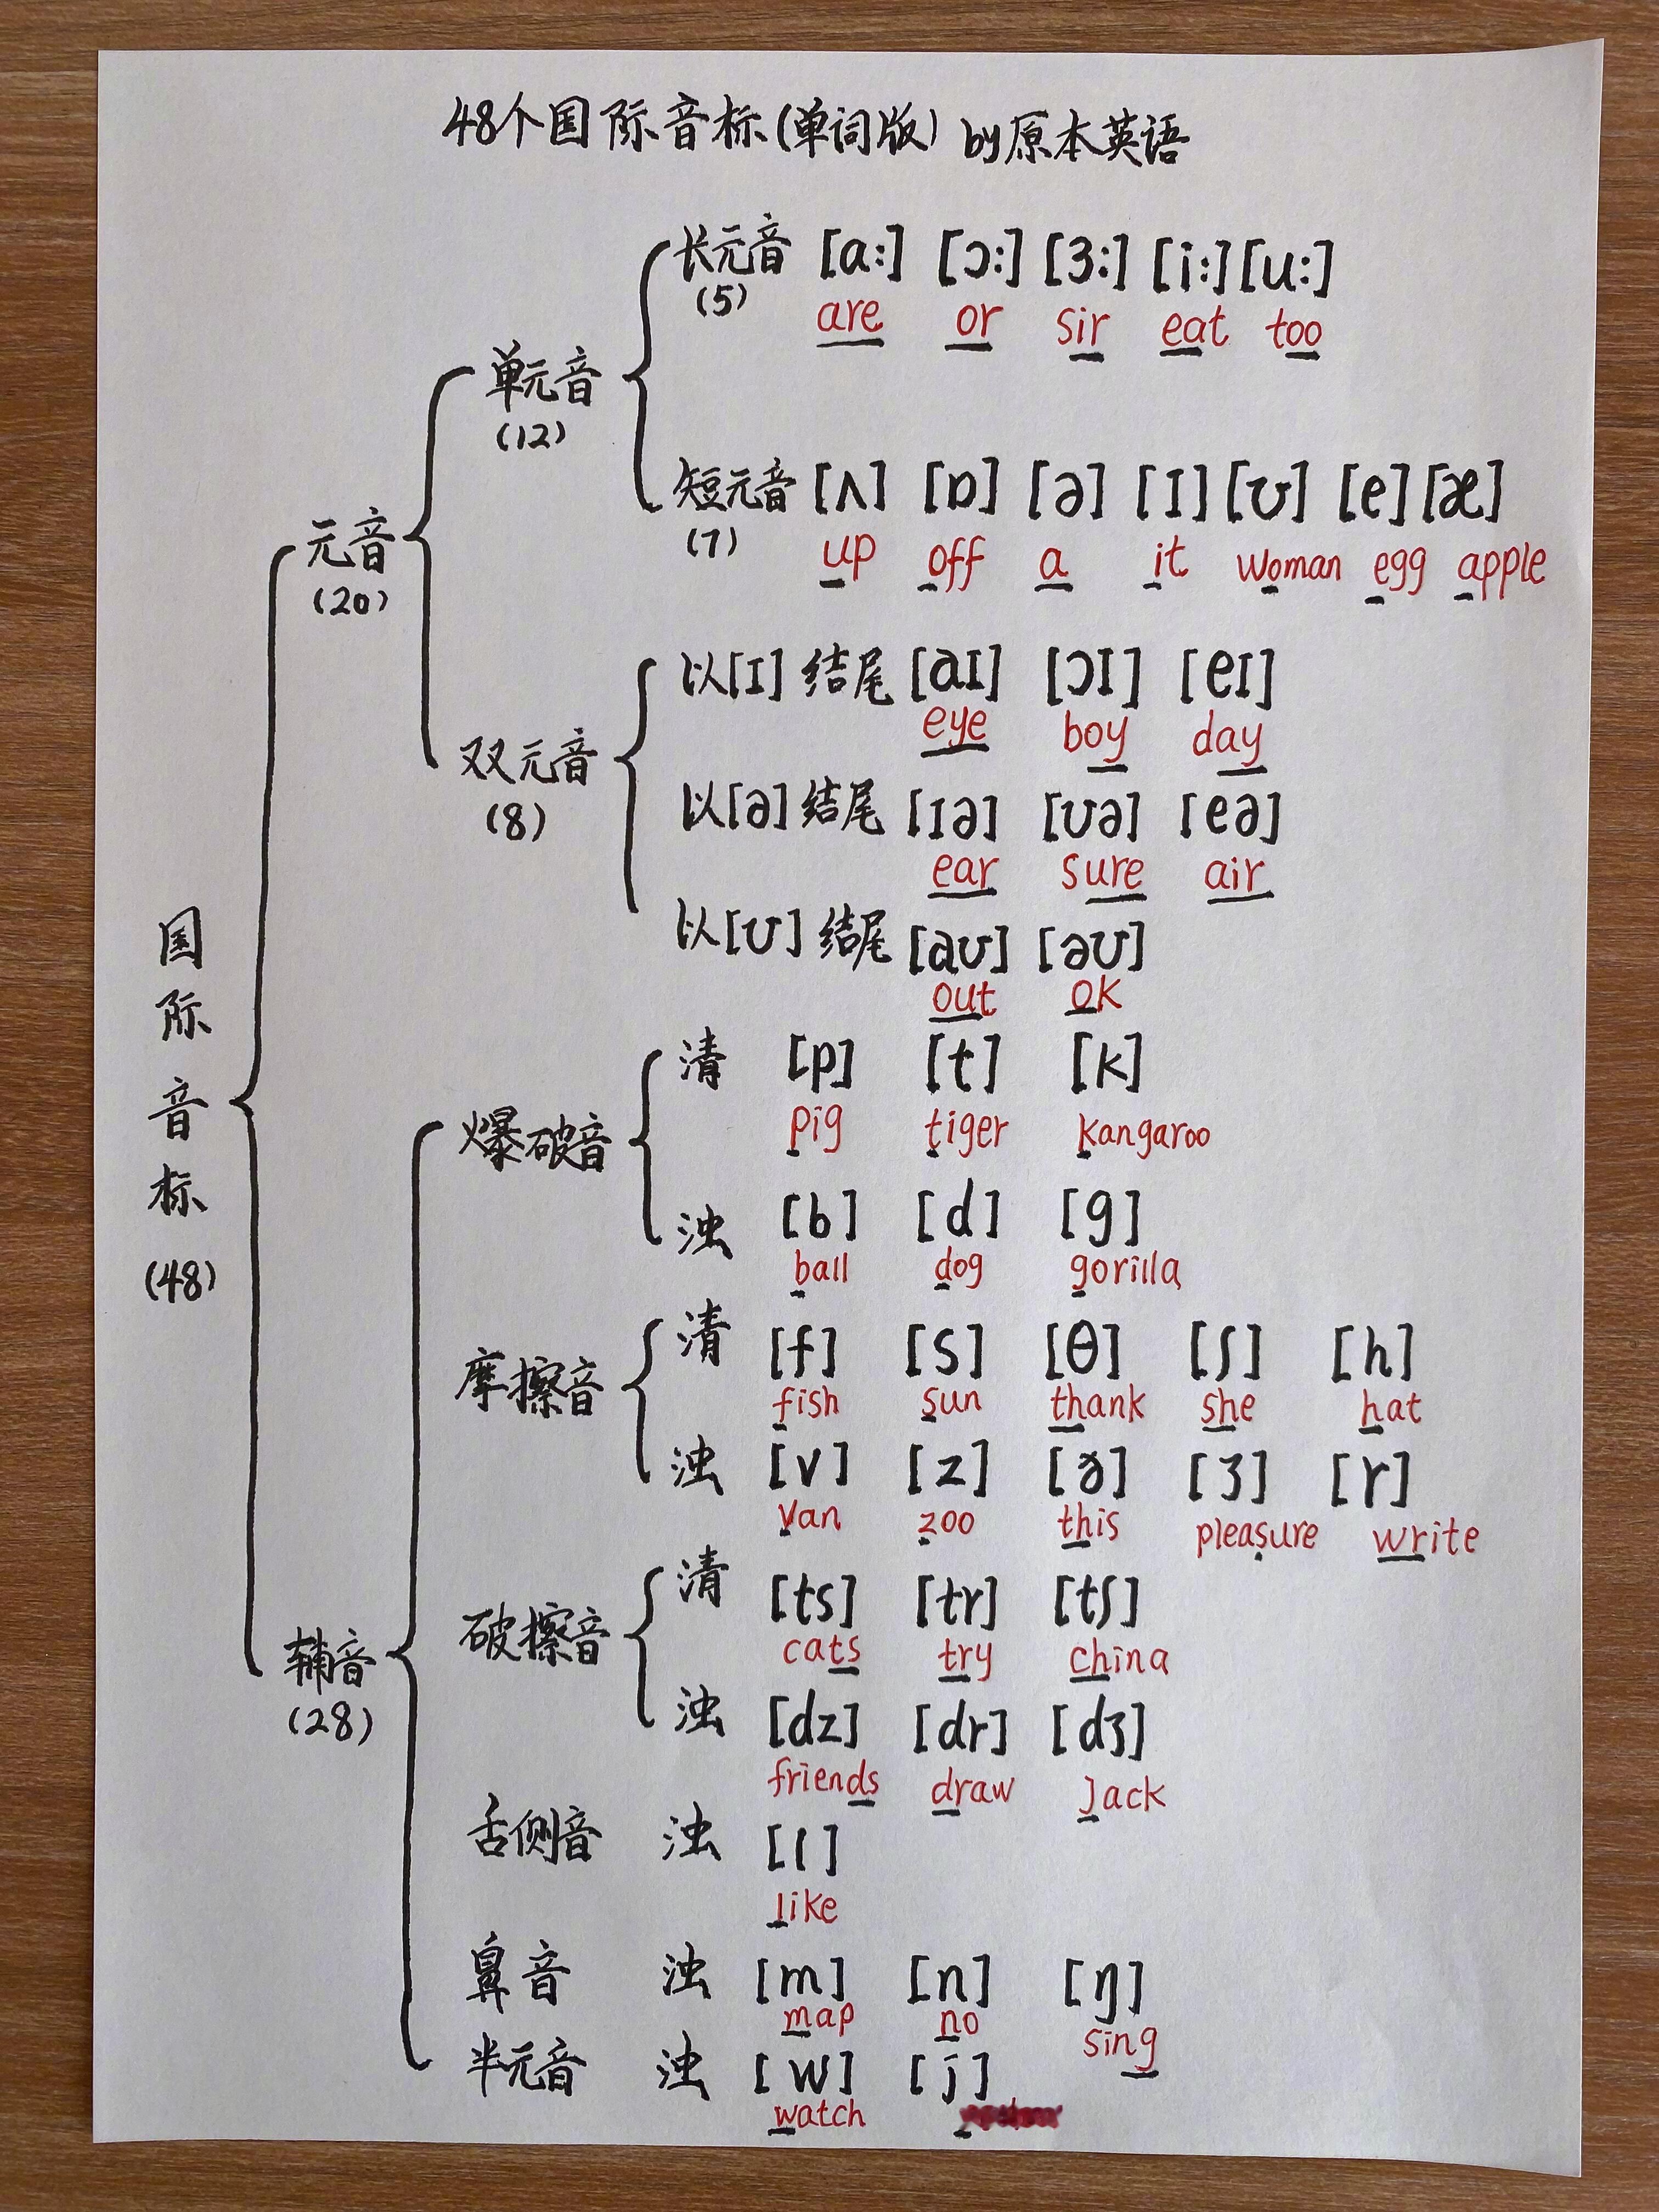 48个国际音标(单词版) by原本英语
长元音 [a:] [ɔ:] [3:] [i:] [u:]
(5) are or sir eat too
单元音
(12)
短元音 [ʌ] [ɒ] [ə] [I] [ʊ] [e] [æ]
(7) up off a it woman egg apple
元音
(20)
以[I]结尾 [aI] [ɔI] [eI]
eye boy day
双元音
(8)
以[ə]结尾 [Iə] [ʊə] [eə]
ear sure air
以[ʊ]结尾 [aʊ] [əʊ]
out OK
国际音标
(48)
清 [p] [t] [k]
pig tiger kangaroo
爆破音
浊 [b] [d] [g]
ball dog gorilla
清 [f] [s] [θ] [ʃ] [h]
fish sun thank she hat
摩擦音
浊 [v] [z] [ð] [ʒ] [r]
van zoo this pleasure write
清 [ts] [tr] [tʃ]
cats try china
破擦音
辅音
(28)
浊 [dz] [dr] [dʒ]
friends draw Jack
舌侧音 浊 [l]
like
鼻音 浊 [m] [n] [ŋ]
map no sing
半元音 浊 [w] [j]
watch